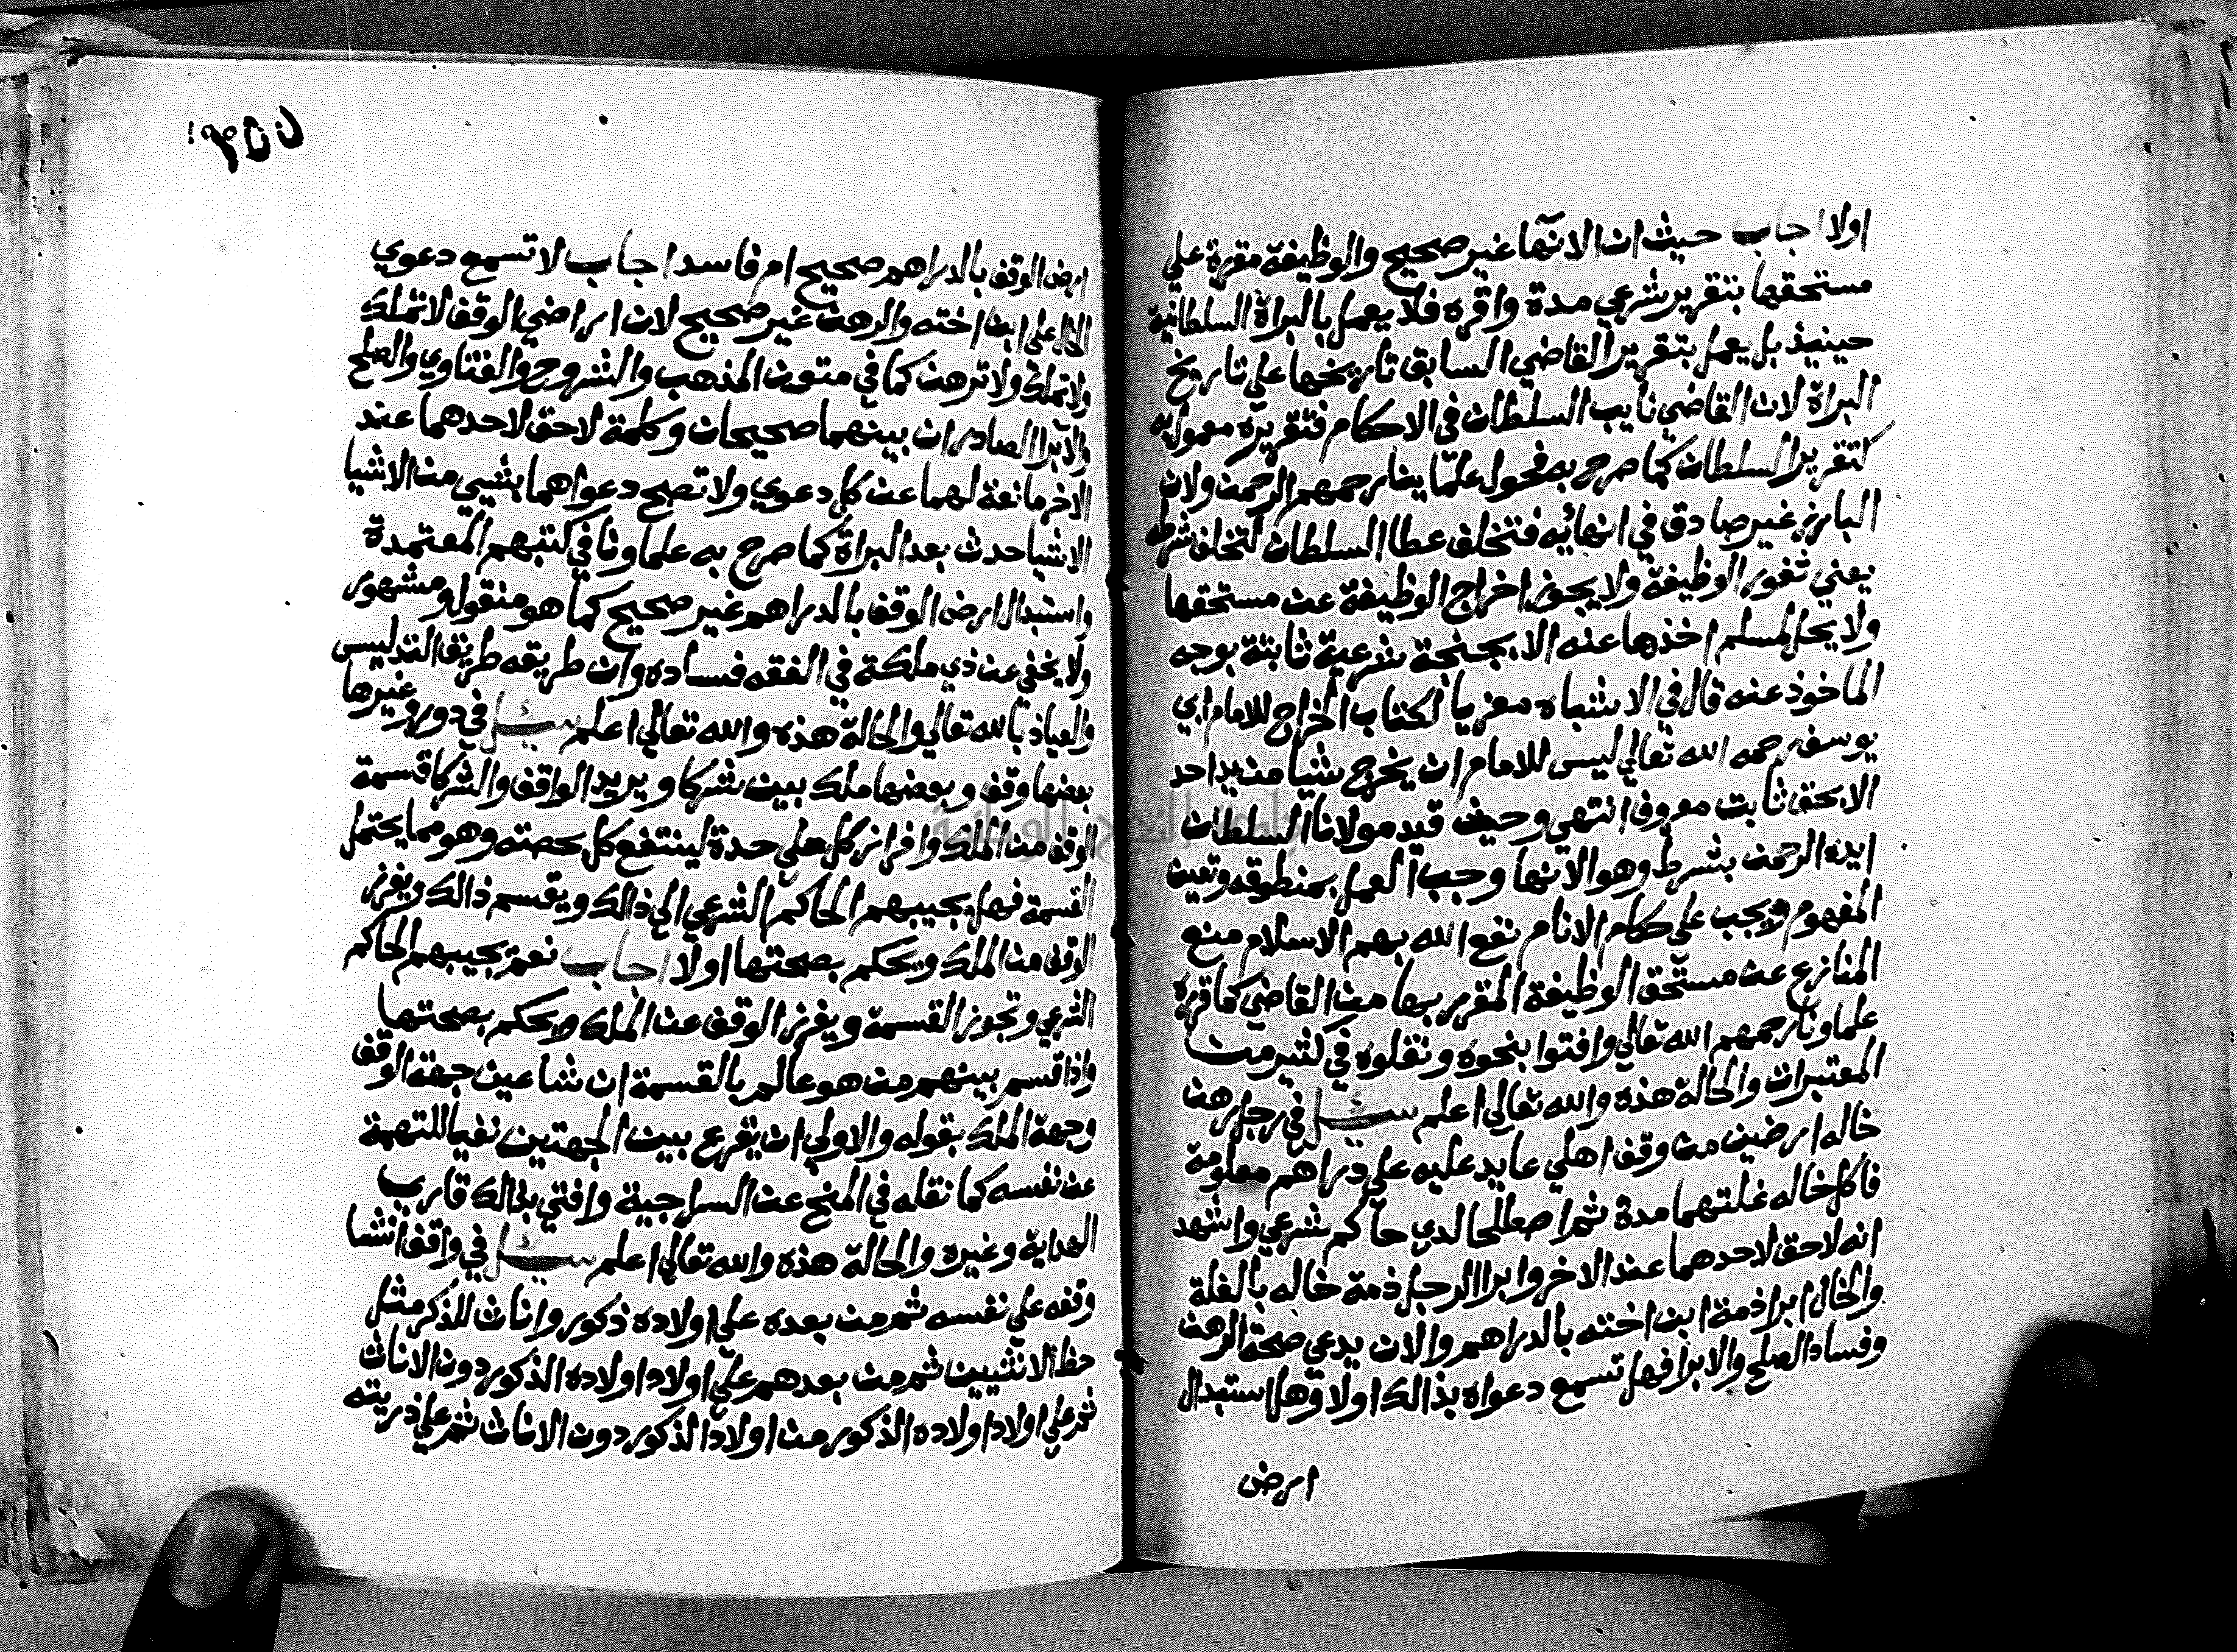 اولا اجاب حيث ان الانها غير صحيح والوظيفة مقررة علي
مستحقها بتقرير شرعي مدة واقره فلا يعمل بالبراة السلطانية
حينيذ بل يعمل بتقرير القاضي السابق تاريخها علي تاريخ
البراة لان القاضي نايب السلطان في الاحكام فتقريره معمول به
كتقرير السلطان كما صرح به فحول علماينا رحمهم الرحمن ولان
البارز غير صادق في انهائه فتخلف عطا السلطان لتخلف شرطه
يعني شغور الوظيفة ولا يجوز اخراج الوظيفة عن مستحقها
ولا يحل لمسلم اخذها عنه الا بجنحة شرعية ثابتة بوجه
الماخوذ عنه قال في الاشباه معزيا لكتاب الخراج للامام ابي
يوسف رحمه الله تعالي ليس للامام ان يخرج شيا من يد احد
الا بحق ثابت معروف انتهي وحيث قيد مولانا السلطان
ايده الرحمن بشرط وهو الانها وجب العمل بمنطوقه وتعين
المفهوم ويجب علي حكام الانام نفع الله بهم الاسلام منع
المنازع عن مستحق الوظيفة المقرر بها من القاضي كما قرره
علماونا رحمهم الله تعالي وافتوا بنحوه ونقلوه في كثير من
المعتبرات والحالة هذه والله تعالي اعلم سئل في رجل رهن
خاله ارضين من وقف اهلي عايد عليه علي دراهم معلومة
فاكل خاله غلتهما مدة ثم اصطلحا لدي حاكم شرعي واشهد
انه لاحق لاحدهما عند الاخر وابرا الرجل ذمة خاله بالغلة
والخال ابرا ذمة ابن اخته بالدراهم والان يدعي صحة الرهن
وفساد الصلح والابرا فهل تسمع دعواه بذالك اولا وهل استبدال
ارض
ارض الوقف بالدراهم صحيح ام فاسد اجاب لا تسمع دعوي
الخال علي ابن اخته والرهن غير صحيح لان اراضي الوقف لا تملك
ولا تملك ولا ترهن كما في متون المذهب والشروح والفتاوي والصلح
والابرا الصادران بينهما صحيحان وكلمة لاحق لاحدهما عند
الاخر مانعة لهما عن كل دعوي ولا تصح دعواهما بشيي من الاشيا
الا شيا حدث بعد البراة كما صرح به علماونا في كتبهم المعتمدة
واستبدال ارض الوقف بالدراهم غير صحيح كما هو منقول ومشهور
ولا يخفي عن ذي ملكة في الفقه فساده وان طريقه طريق التدليس
والعياذ بالله تعالي والحالة هذه والله تعالي اعلم سئل في دور وغيرها
بعضها وقف وبعضها ملك بين شركا ويريد الواقف والشركا قسمة
الوقف من الملك وافراز كل علي حدة لينتفع كل بحصته وهو مما يحتمل
القسمة فهل يجيبهم الحاكم الشرعي الي ذالك ويقسم ذالك ويفرز
الوقف من الملك ويحكم بصحتها اولا اجاب نعم يجيبهم الحاكم
الشرعي وتجوز القسمة ويفرز الوقف عن الملك ويحكم بصحتها
واذا قسم بينهم من هو عالم بالقسمة ان شا عين جهة الوقف
وجهة الملك بقوله والاولي ان يقرع بين الجهتين نفيا للتهمة
عن نفسه كما نقله في المنح عن السراجية وافتي بذالك قاري
الهداية وغيره والحالة هذه والله تعالي اعلم سئل في واقف انشا
وقفه علي نفسه ثم من بعده علي اولاده ذكور واناث للذكر مثل
حظ الانثيين ثم من بعدهم علي اولاد اولاده الذكور دون الاناث
ثم علي اولاد اولاده الذكور من اولاد الذكور دون الاناث ثم علي ذريته